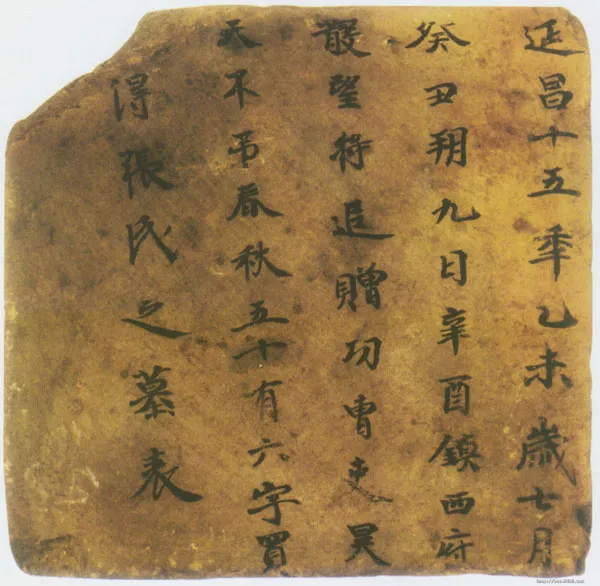 延昌十五秊乙未歲七月
癸丑朔九日辛酉鎮西府
散望将追贈功曹吏昊
天不弔春秋五十有六字買
得張氏之墓表